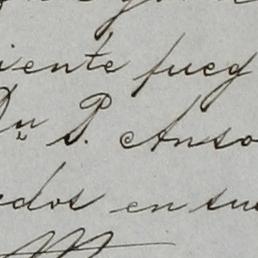 iente fueg
Dn P. Anso
edos en su